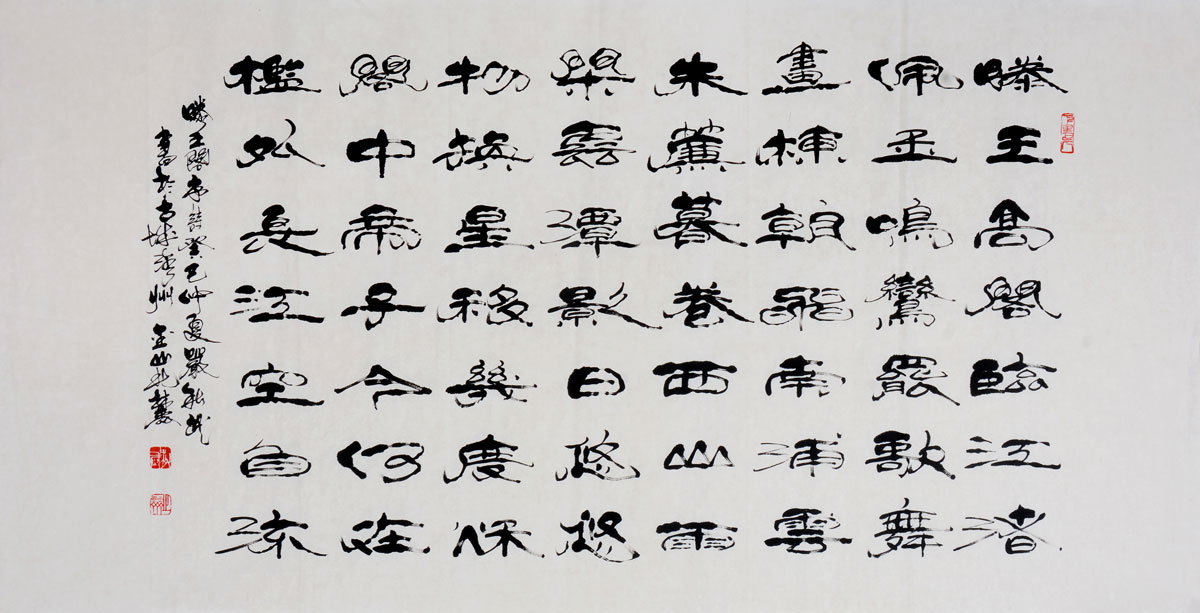 滕王高閣臨江渚
佩玉鳴鸞罷歌舞
畫棟朝飛南浦雲
朱簾暮卷西山雨
閑雲潭影日悠悠
物換星移幾度秋
閣中帝子今何在
檻外長江空自流
滕王閣序詩癸巳仲夏
書於古城